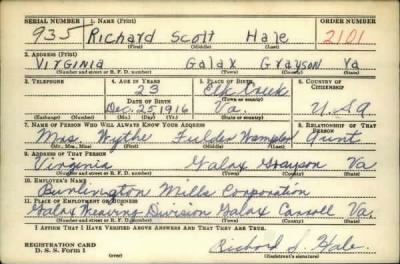 SERIAL NUMBER 1. NAME (Print) ORDER NUMBER
935 Richard Scott Hale 2101
(First) (Middle) (Last)
2. ADDRESS (Print)
VIRGINIA Galax Grayson Va
(Number and street or R. F. D. number) (Town) (County) (State)
3. TELEPHONE 4. AGE IN YEARS 5. PLACE OF BIRTH 6. COUNTRY OF CITIZENSHIP
23 Elk Creek
DATE OF BIRTH (Town or county)
Dec. 25 1916 Va. U.S.A
(Exchange) (Number) (Mo.) (Day) (Yr.) (State or country)
7. NAME OF PERSON WHO WILL ALWAYS KNOW YOUR ADDRESS 8. RELATIONSHIP OF THAT PERSON
Mrs. Wythe Fielder Wampler Aunt
(Mr., Mrs., Miss) (First) (Middle) (Last)
9. ADDRESS OF THAT PERSON
Virginia Galax Grayson Va
(Number and street or R. F. D. number) (Town) (County) (State)
10. EMPLOYER'S NAME
Burlington Mills Corporation
11. PLACE OF EMPLOYMENT OR BUSINESS
Galax Weaving Division Galax Carroll Va.
(Number and street or R. F. D. number) (Town) (County) (State)
I AFFIRM THAT I HAVE VERIFIED ABOVE ANSWERS AND THAT THEY ARE TRUE.
REGISTRATION CARD
D. S. S. Form 1 Richard S. Hale
(Registrant's signature)